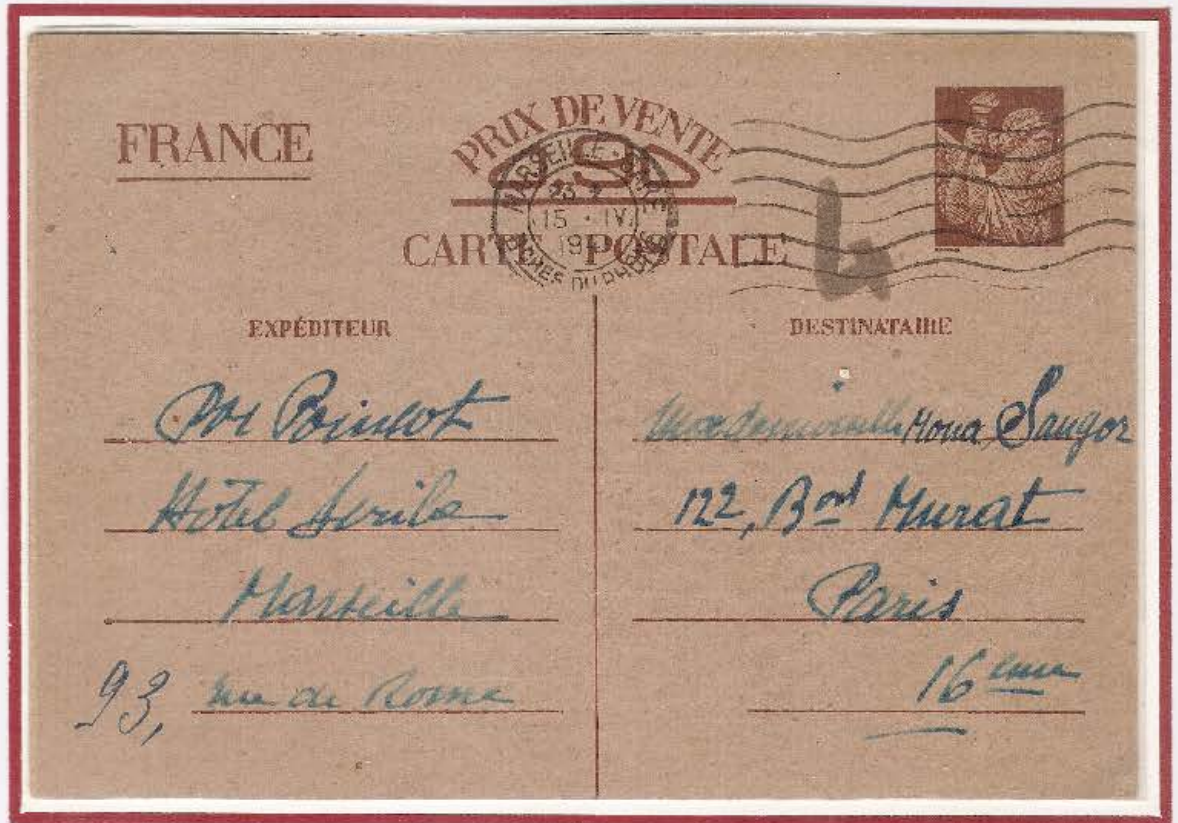 FRANCE
PRIX DE VENTE
90
MARSEILLE-GARE
15 · IV
BCHES DU RHONE
CARTE POSTALE
EXPÉDITEUR
Hôtel Scribe
Marseille
93, rue de Rome
DESTINATAIRE
Mademoiselle Mona Sangor
122, Bard Murat
Paris
16eme